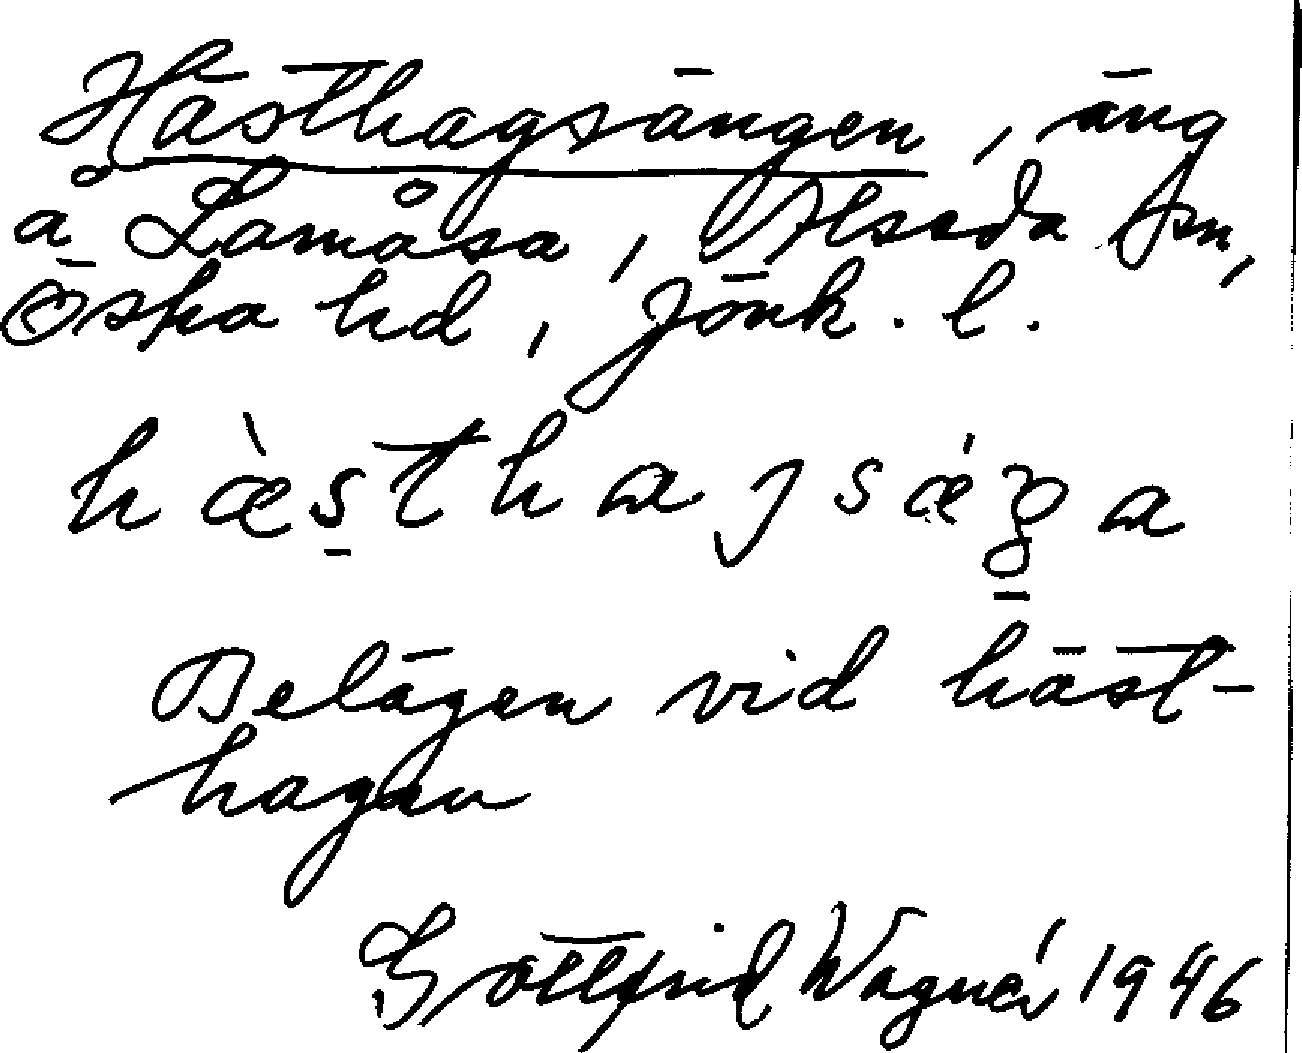 Hästhagsängen, äng
å Lamåsa, Alseda sn,
Östra hd, Jönk. l.
hæ̀sthaɡsǽŋa
Belägen vid häst-
hagen
Gottfrid Wagnér 1946